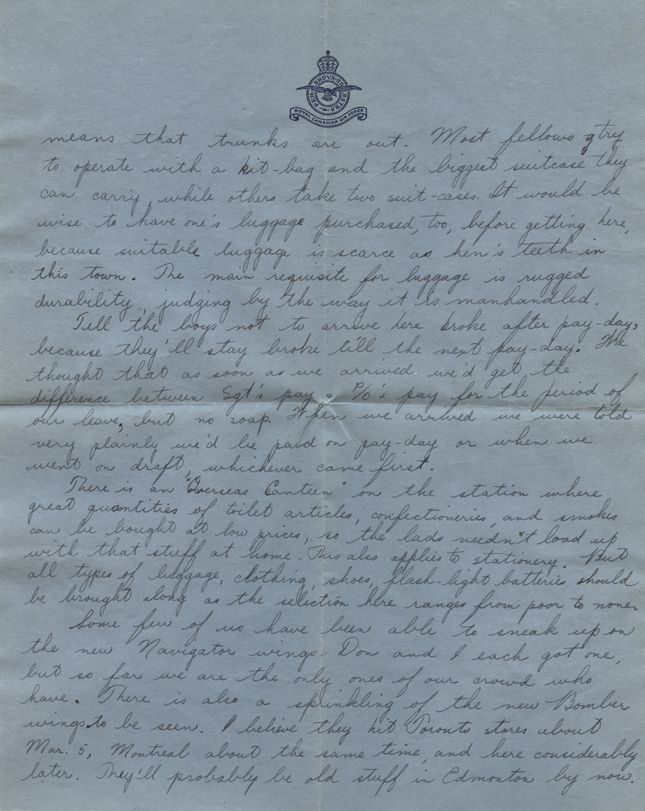 PER ARDUA AD ASTRA
ROYAL CANADIAN AIR FORCE
means that trunks are out. Most fellows try
to operate with a kit-bag and the biggest suitcase they
can carry, while others take two suit-cases. It would be
wise to have one's luggage purchased, too, before getting here,
because suitable luggage is scarce as hen's teeth in
this town. The main requisite for luggage is rugged
durability, judging by the way it is manhandled.
Tell the boys not to arrive here broke after pay-day,
because they'll stay broke till the next pay-day. We
thought that as soon as we arrived we'd get the
difference between Sgt's pay & P/O's pay for the period of
our leave, but no soap. When we arrived we were told
very plainly we'd be paid on pay-day or when we
went on draft, whichever came first.
There is an "Overseas Canteen" on the station where
great quantities of toilet articles, confectioneries, and smokes
can be bought at low prices, so the lads needn't load up
with that stuff at home. This also applies to stationery. But
all types of luggage, clothing, shoes, flash-light batteries should
be brought along as the selection here ranges from poor to none.
Some few of us have been able to sneak up on
the new Navigator wings. Don and I each got one,
but so far we are the only ones of our crowd who
have. There is also a sprinkling of the new Bomber
wings to be seen. I believe they hit Toronto stores about
Mar. 5, Montreal about the same time, and here considerably
later. They'll probably be old stuff in Edmonton by now.